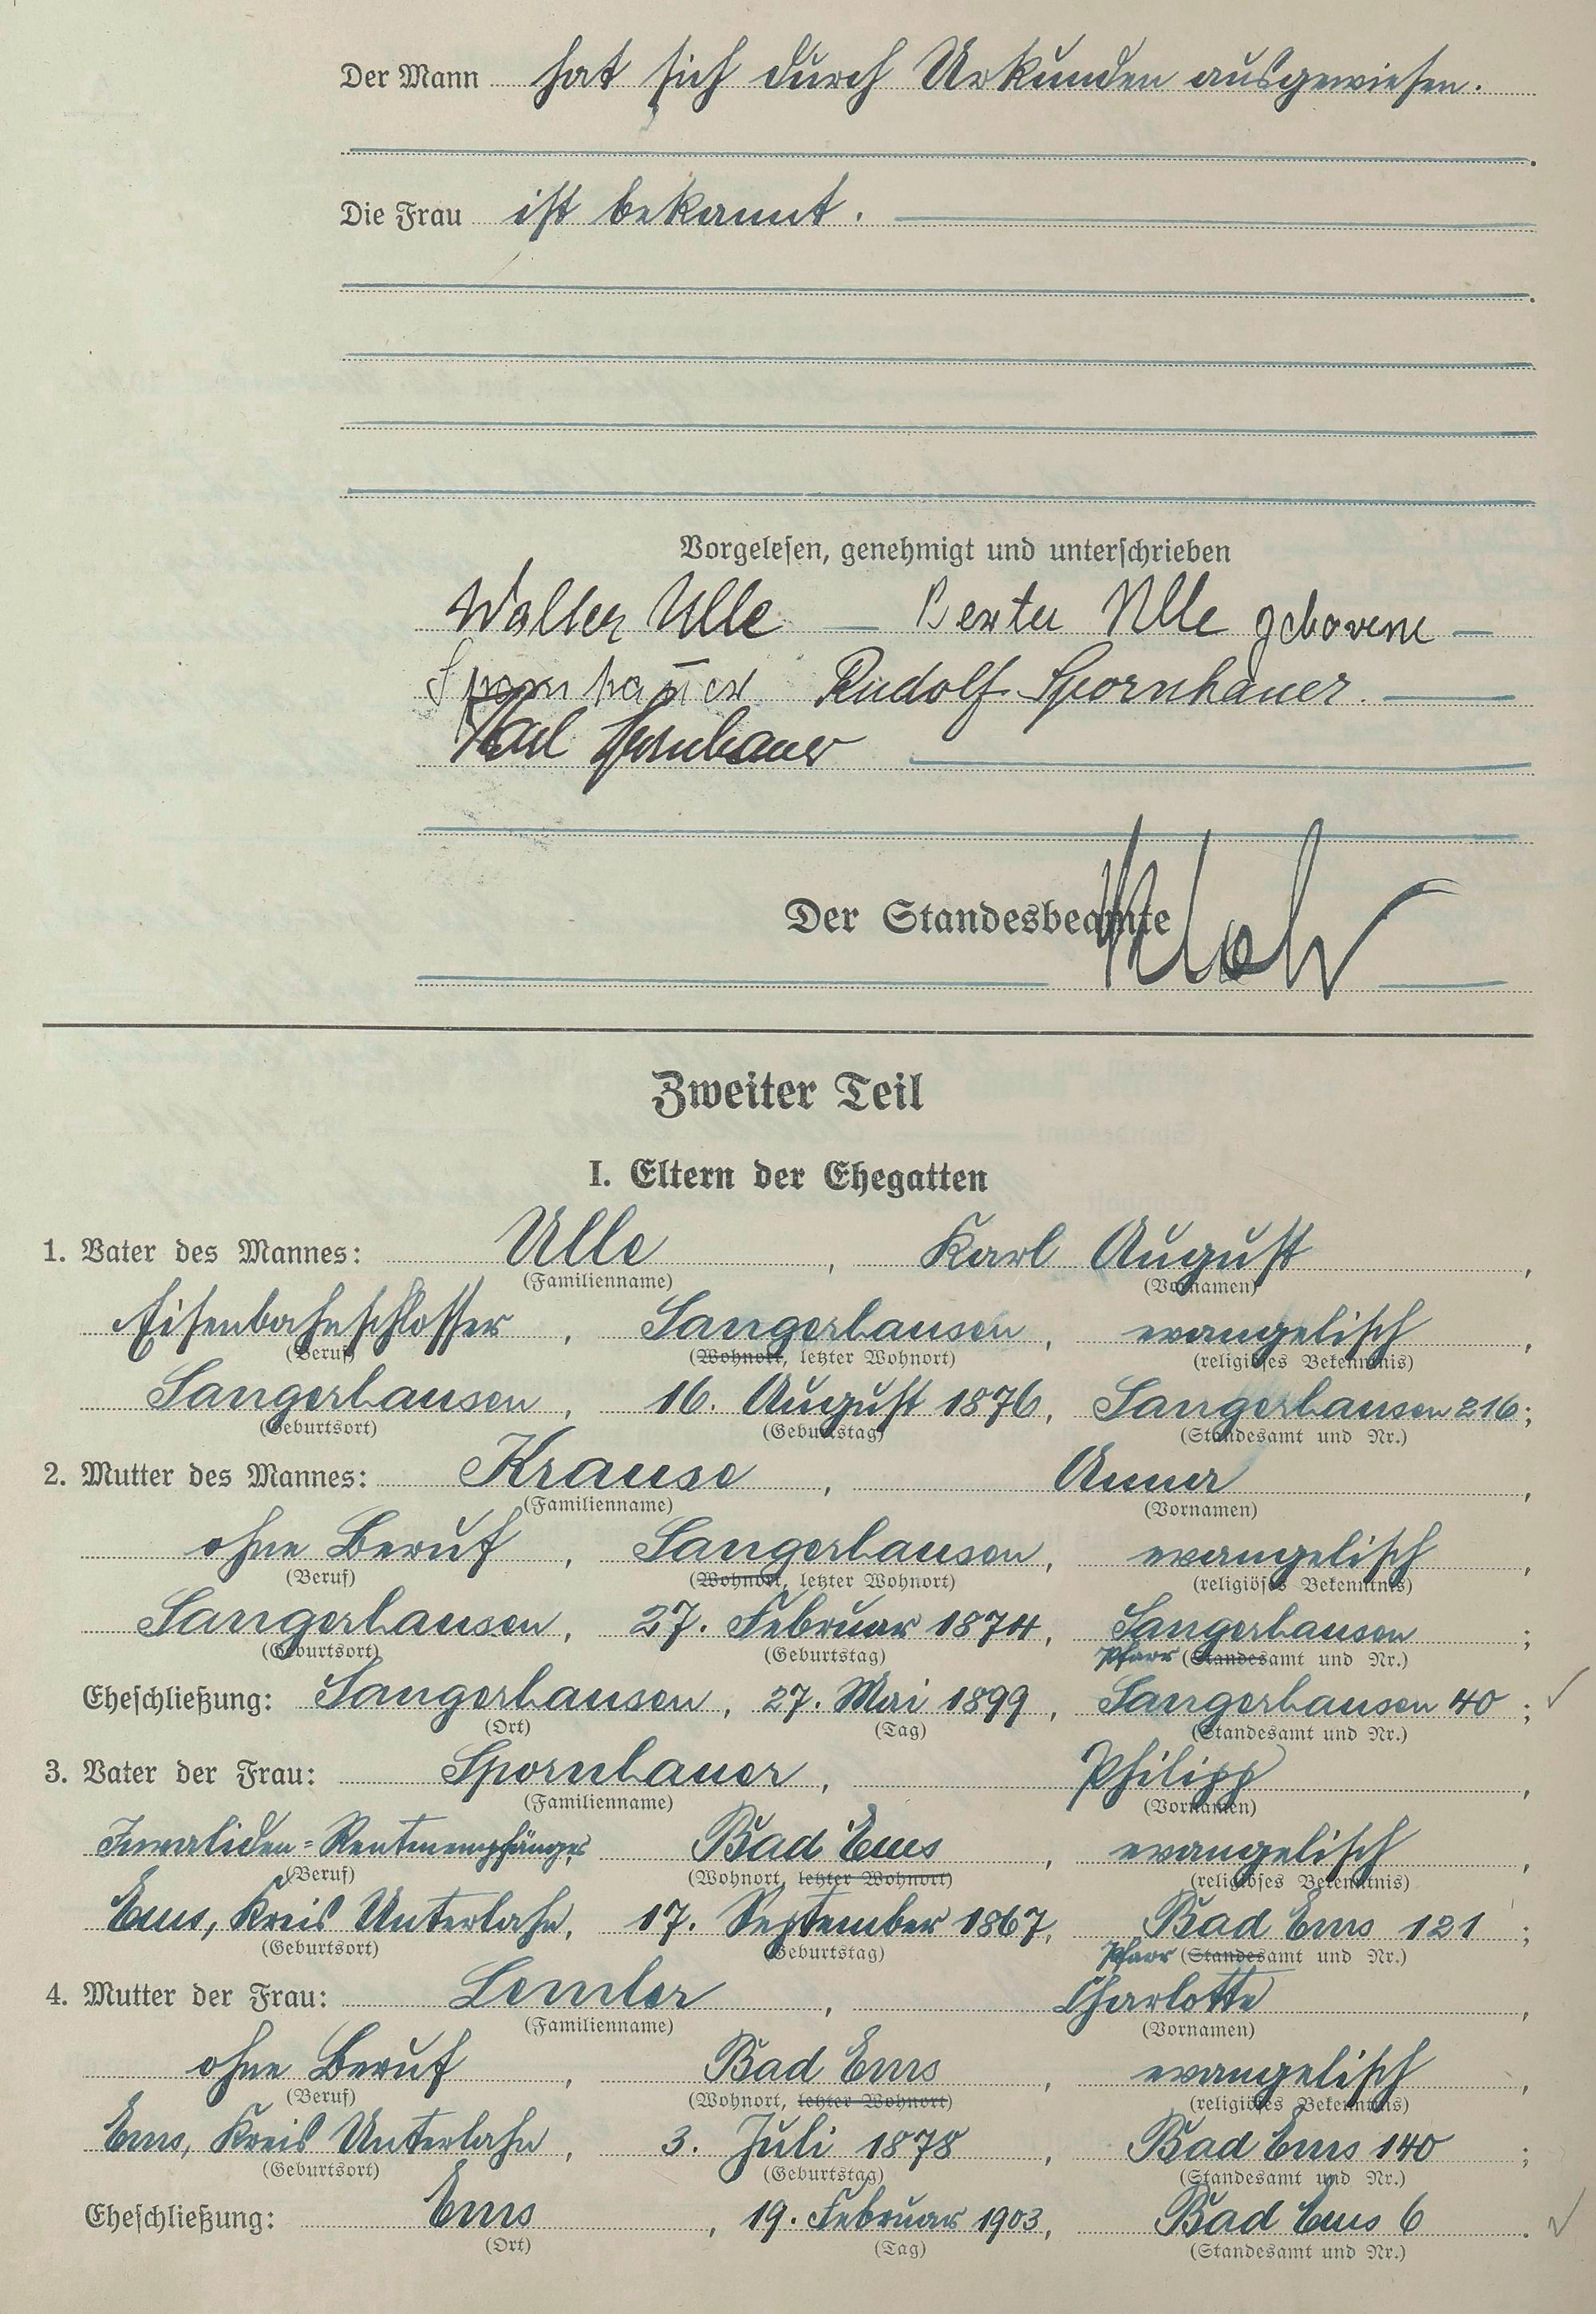 Der Mann hat sich durch Urkunden ausgewiesen.
Die Frau ist bekannt.
Vorgelesen, genehmigt und unterschrieben
Walter Ulle — Berta Ulle geborene —
Spornhauer Rudolf Spornhauer.
Karl Spornhauer
Der Standesbeamte
Zweiter Teil
I. Eltern der Ehegatten
1. Vater des Mannes: Ulle, Karl August,
(Familienname) (Vornamen)
Eisenbahnschlosser, Sangerhausen, evangelisch,
(Beruf) (Wohnort, letzter Wohnort) (religiöses Bekenntnis)
Sangerhausen, 16. August 1876, Sangerhausen 216;
(Geburtsort) (Geburtstag) (Standesamt und Nr.)
2. Mutter des Mannes: Krause, Anna,
(Familienname) (Vornamen)
ohne Beruf, Sangerhausen, evangelisch,
(Beruf) (Wohnort, letzter Wohnort) (religiöses Bekenntnis)
Sangerhausen, 27. Februar 1874, Sangerhausen;
(Geburtsort) (Geburtstag) Pfarr (Standesamt und Nr.)
Eheschließung: Sangerhausen, 27. Mai 1899, Sangerhausen 40;
(Ort) (Tag) (Standesamt und Nr.)
3. Vater der Frau: Spornhauer, Philipp,
(Familienname) (Vornamen)
Invaliden=Rentenempfänger, Bad Ems, evangelisch,
(Beruf) (Wohnort, letzter Wohnort) (religiöses Bekenntnis)
Ems, Kreis Unterlahn, 17. September 1867, Bad Ems 121;
(Geburtsort) (Geburtstag) Pfarr (Standesamt und Nr.)
4. Mutter der Frau: Lemler, Charlotte,
(Familienname) (Vornamen)
ohne Beruf, Bad Ems, evangelisch,
(Beruf) (Wohnort, letzter Wohnort) (religiöses Bekenntnis)
Ems, Kreis Unterlahn, 3. Juli 1878, Bad Ems 140;
(Geburtsort) (Geburtstag) (Standesamt und Nr.)
Eheschließung: Ems, 19. Februar 1903, Bad Ems 6.
(Ort) (Tag) (Standesamt und Nr.)